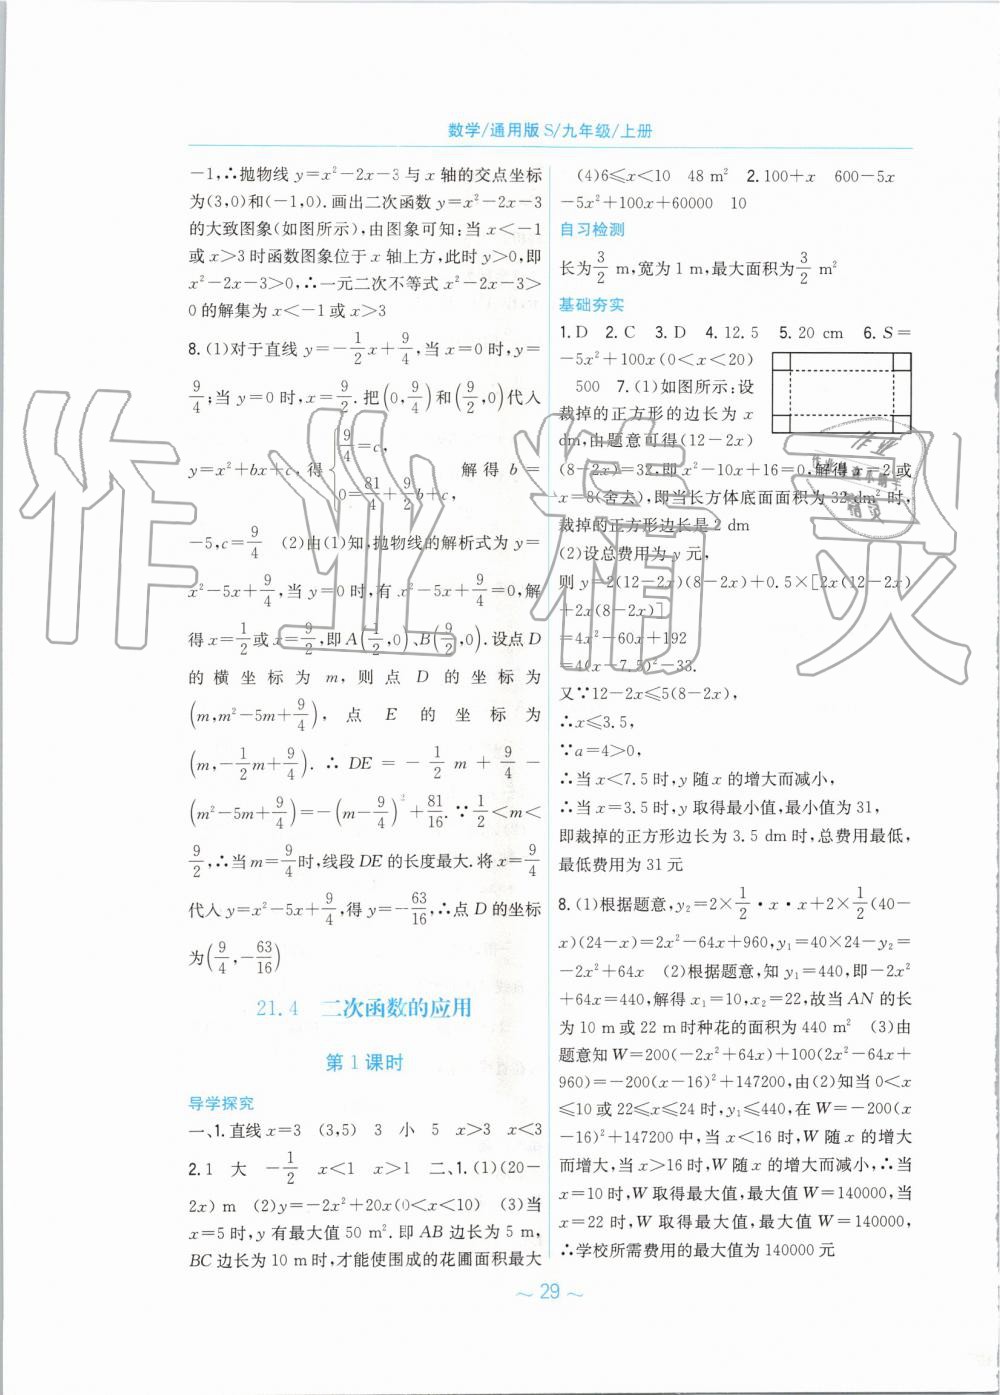 数学/通用版S/九年级/上册
-1,∴抛物线 y=x²-2x-3 与 x 轴的交点坐标
为(3,0)和(-1,0).画出二次函数 y=x²-2x-3
的大致图象(如图所示),由图象可知:当 x<-1
或 x>3 时函数图象位于 x 轴上方,此时 y>0,即
x²-2x-3>0,∴一元二次不等式 x²-2x-3>
0 的解集为 x<-1 或 x>3
8.(1)对于直线 y=-1/2x+9/4,当 x=0 时,y=
9/4;当 y=0 时,x=9/2.把(0,9/4)和(9/2,0)代入
y=x²+bx+c,得{9/4=c, 0=81/4+9/2b+c, 解得 b=
-5,c=9/4 (2)由(1)知,抛物线的解析式为 y=
x²-5x+9/4,当 y=0 时,有 x²-5x+9/4=0,解
得 x=1/2或 x=9/2,即 A(1/2,0)、B(9/2,0).设点 D
的横坐标为 m,则点 D 的坐标为
(m,m²-5m+9/4),点 E 的坐标为
(m,-1/2m+9/4).∴DE=-1/2m+9/4-
(m²-5m+9/4)=-(m-9/4)²+81/16.∵1/2<m<
9/2,∴当 m=9/4时,线段 DE 的长度最大.将 x=9/4
代入 y=x²-5x+9/4,得 y=-63/16,∴点 D 的坐标
为(9/4,-63/16)
21.4 二次函数的应用
第1课时
导学探究
一、1.直线 x=3 (3,5) 3 小 5 x>3 x<3
2.1 大 -1/2 x<1 x>1 二、1.(1)(20-
2x) m (2)y=-2x²+20x(0<x<10) (3)当
x=5 时,y 有最大值 50 m².即 AB 边长为 5 m,
BC 边长为 10 m 时,才能使围成的花圃面积最大
(4)6≤x<10 48 m² 2.100+x 600-5x
-5x²+100x+60000 10
自习检测
长为3/2 m,宽为 1 m,最大面积为3/2 m²
基础夯实
1.D 2.C 3.D 4.12.5 5.20 cm 6.S=
-5x²+100x(0<x<20)
500 7.(1)如图所示:设
裁掉的正方形的边长为 x
dm,由题意可得(12-2x)
(8-2x)=32,即 x²-10x+16=0,解得 x=2 或
x=8(舍去),即当长方体底面面积为 32 dm² 时,
裁掉的正方形边长是 2 dm
(2)设总费用为 y 元,
则 y=2(12-2x)(8-2x)+0.5×[2x(12-2x)
+2x(8-2x)]
=4x²-60x+192
=4(x-7.5)²-33.
又∵12-2x≤5(8-2x),
∴x≤3.5,
∵a=4>0,
∴当 x<7.5 时,y 随 x 的增大而减小,
∴当 x=3.5 时,y 取得最小值,最小值为 31,
即裁掉的正方形边长为 3.5 dm 时,总费用最低,
最低费用为 31 元
8.(1)根据题意,y₂=2×1/2·x·x+2×1/2(40-
x)(24-x)=2x²-64x+960,y₁=40×24-y₂=
-2x²+64x (2)根据题意,知 y₁=440,即-2x²
+64x=440,解得 x₁=10,x₂=22,故当 AN 的长
为 10 m 或 22 m 时种花的面积为 440 m² (3)由
题意知 W=200(-2x²+64x)+100(2x²-64x+
960)=-200(x-16)²+147200,由(2)知当 0<x
≤10 或 22≤x≤24 时,y₁≤440,在 W=-200(x
-16)²+147200 中,当 x<16 时,W 随 x 的增大
而增大,当 x>16 时,W 随 x 的增大而减小,∴当
x=10 时,W 取得最大值,最大值 W=140000,当
x=22 时,W 取得最大值,最大值 W=140000,
∴学校所需费用的最大值为 140000 元
~ 29 ~
作业精灵